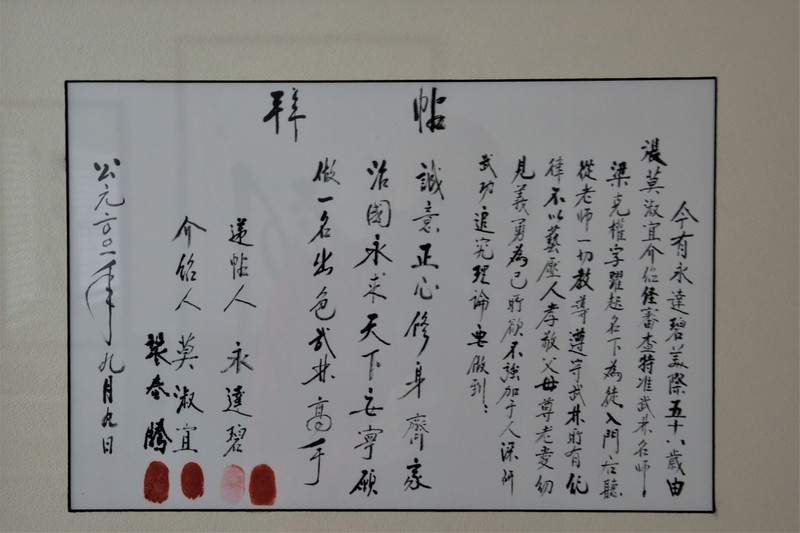 拜帖
今有永達碧美際五十八歲由
張莫淑宜介紹経審查特准武林名師
梁克權字躍起名下為徒入門后聽
從老师一切教導遵守武林所有紀
律不以藝壓人孝敬父母尊老爱幼
見義勇為己所欲不強加于人深研
武功追究理論要做到：
誠意正心修身齊家
治國永求天下安寧願
做一名出色武林高手
递帖人 永達碧
介紹人 莫淑宜
張泰騰
公元二〇〇一年九月九日